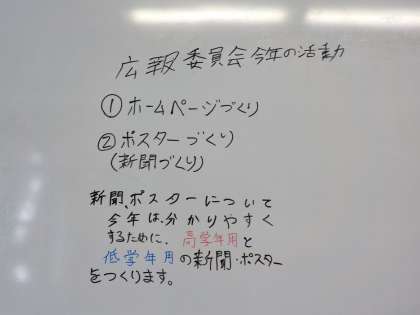 広報委員会今年の活動
①ホームページづくり
②ポスターづくり
(新聞づくり)
新聞、ポスターについて
今年は、分かりやすく
するために、高学年用と
低学年用の新聞・ポスター
をつくります。